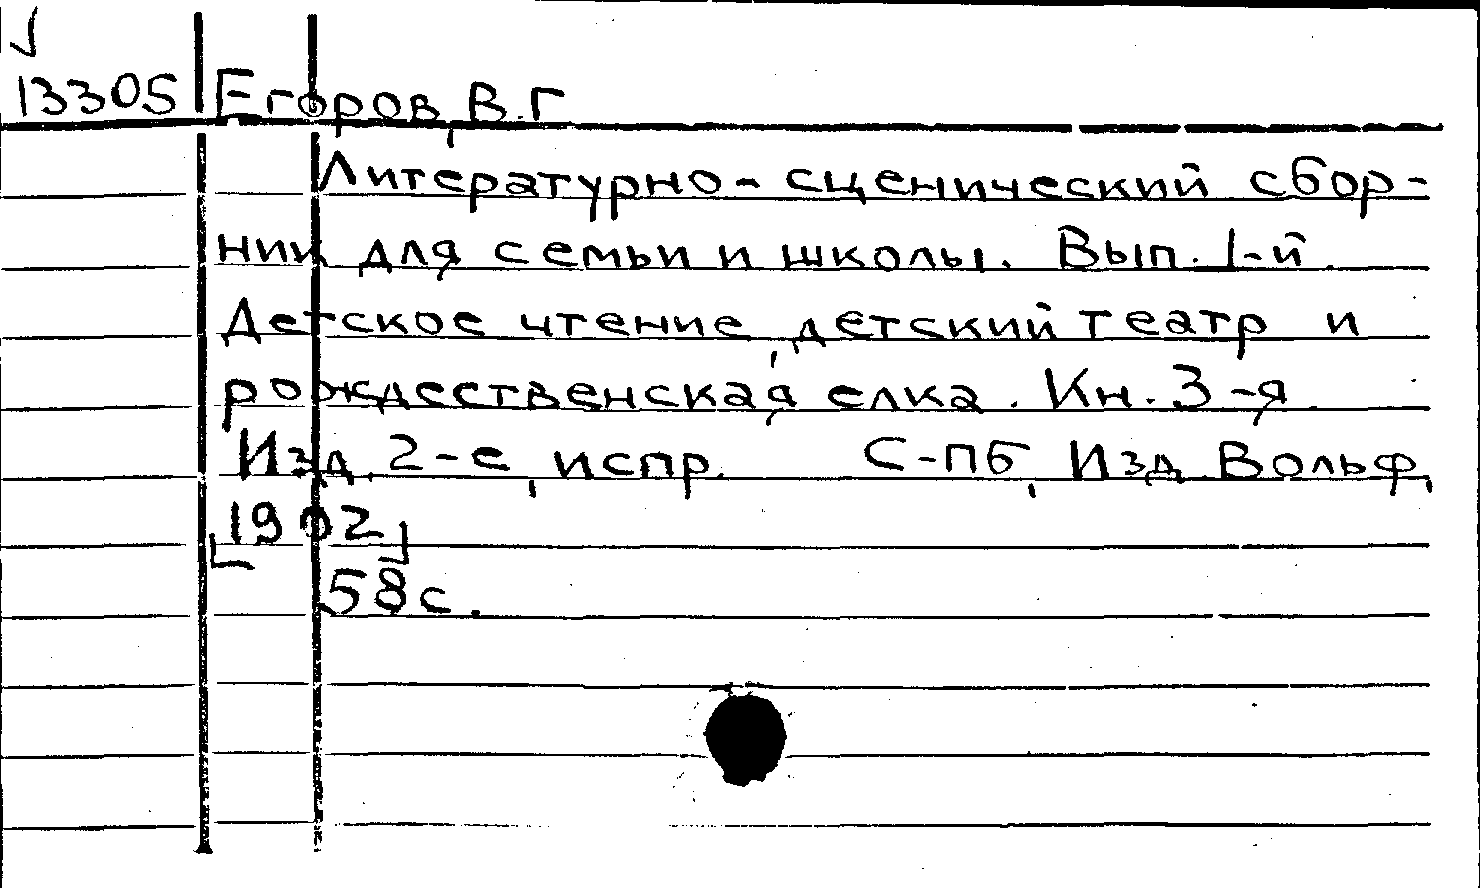 13305 Егоров, В.Г
Литературно-сценический сбор-
ник для семьи и школы. Вып. 1-й.
Детское чтение, детский театр и
рождественская елка. Кн. 3-я
Изд. 2-е, испр. С-ПБ, Изд. Вольф,
[1902]
58 с.